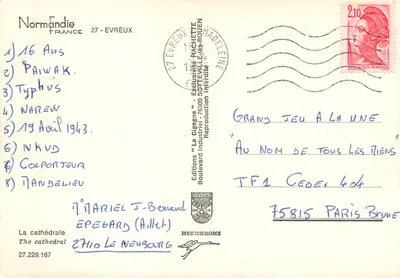 Normandie
FRANCE
27 - EVREUX
1) 16 Ans
2) PAIWAK.
3) Typhus
4) NAREW
5) 19 Avril 1943.
6) NKVD
7) COLPORTEUR
8) MANDELIEU
Mr MARIEL J-Bernard
EPEGARD
27110 LE NEUBOURG
La cathédrale
The cathedral
27.229.167
Editions "La Cigogne" - Exclusivité HACHETTE
Boulevard Industriel - 76300 SOTTEVILLE-lès-ROUEN
Reproduction interdite
MEXICHROME
27 EVREUX MADELEINE
2,10
GRAND JEU A LA UNE
"AU NOM DE TOUS LES MIENS"
TF1 CEDEX 404
75815 PARIS BRUNE